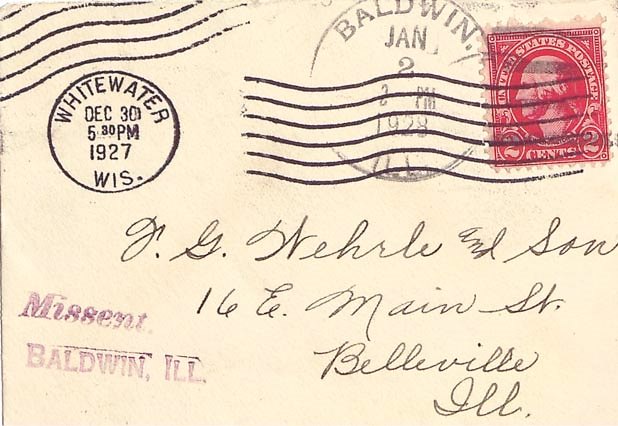 WHITEWATER
DEC 30
5 30 PM
1927
WIS.
BALDWIN,
JAN
2
PM
1928
ILL.
UNITED STATES POSTAGE
2 CENTS 2
F. G. Wehrle and Son
16 E. Main St.
Belleville
Ill.
Missent.
BALDWIN, ILL.